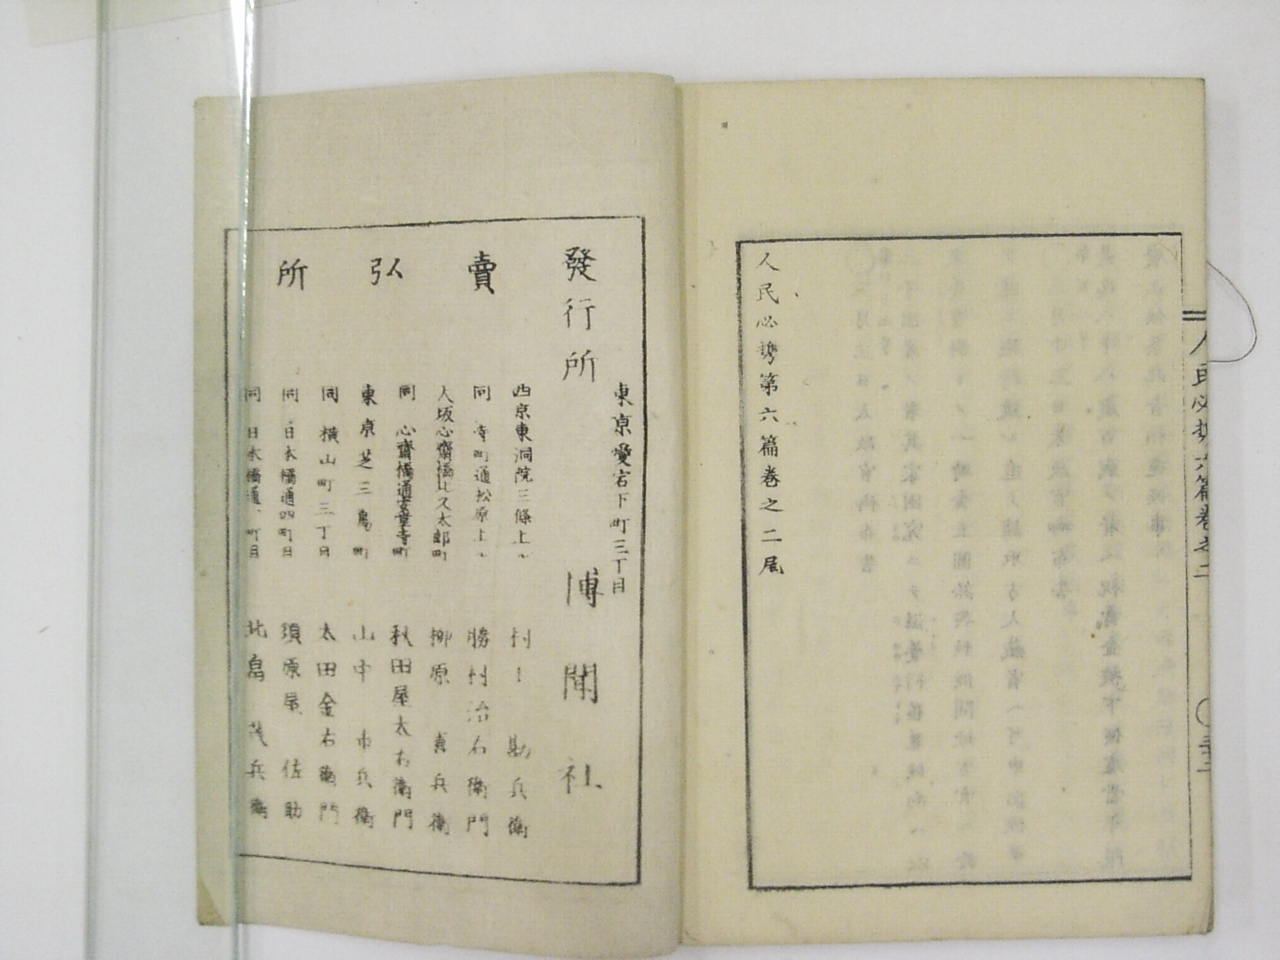 人民必携第六篇巻之二尾
人民必携六篇巻之二
東京愛宕下町三丁目
發行所 博聞社
賣弘所
西京東洞院三條上ル 村上勘兵衛
同 寺町通松原上ル 勝村治右衛門
大坂心齋橋北久太郎町 柳原喜兵衛
同 心齋橋通安堂寺町 秋田屋太右衛門
東京芝三島町 山中市兵衛
同 横山町三丁目 太田金右衛門
同 日本橋通四町目 須原屋佐助
同 日本橋通 町目 北畠茂兵衛